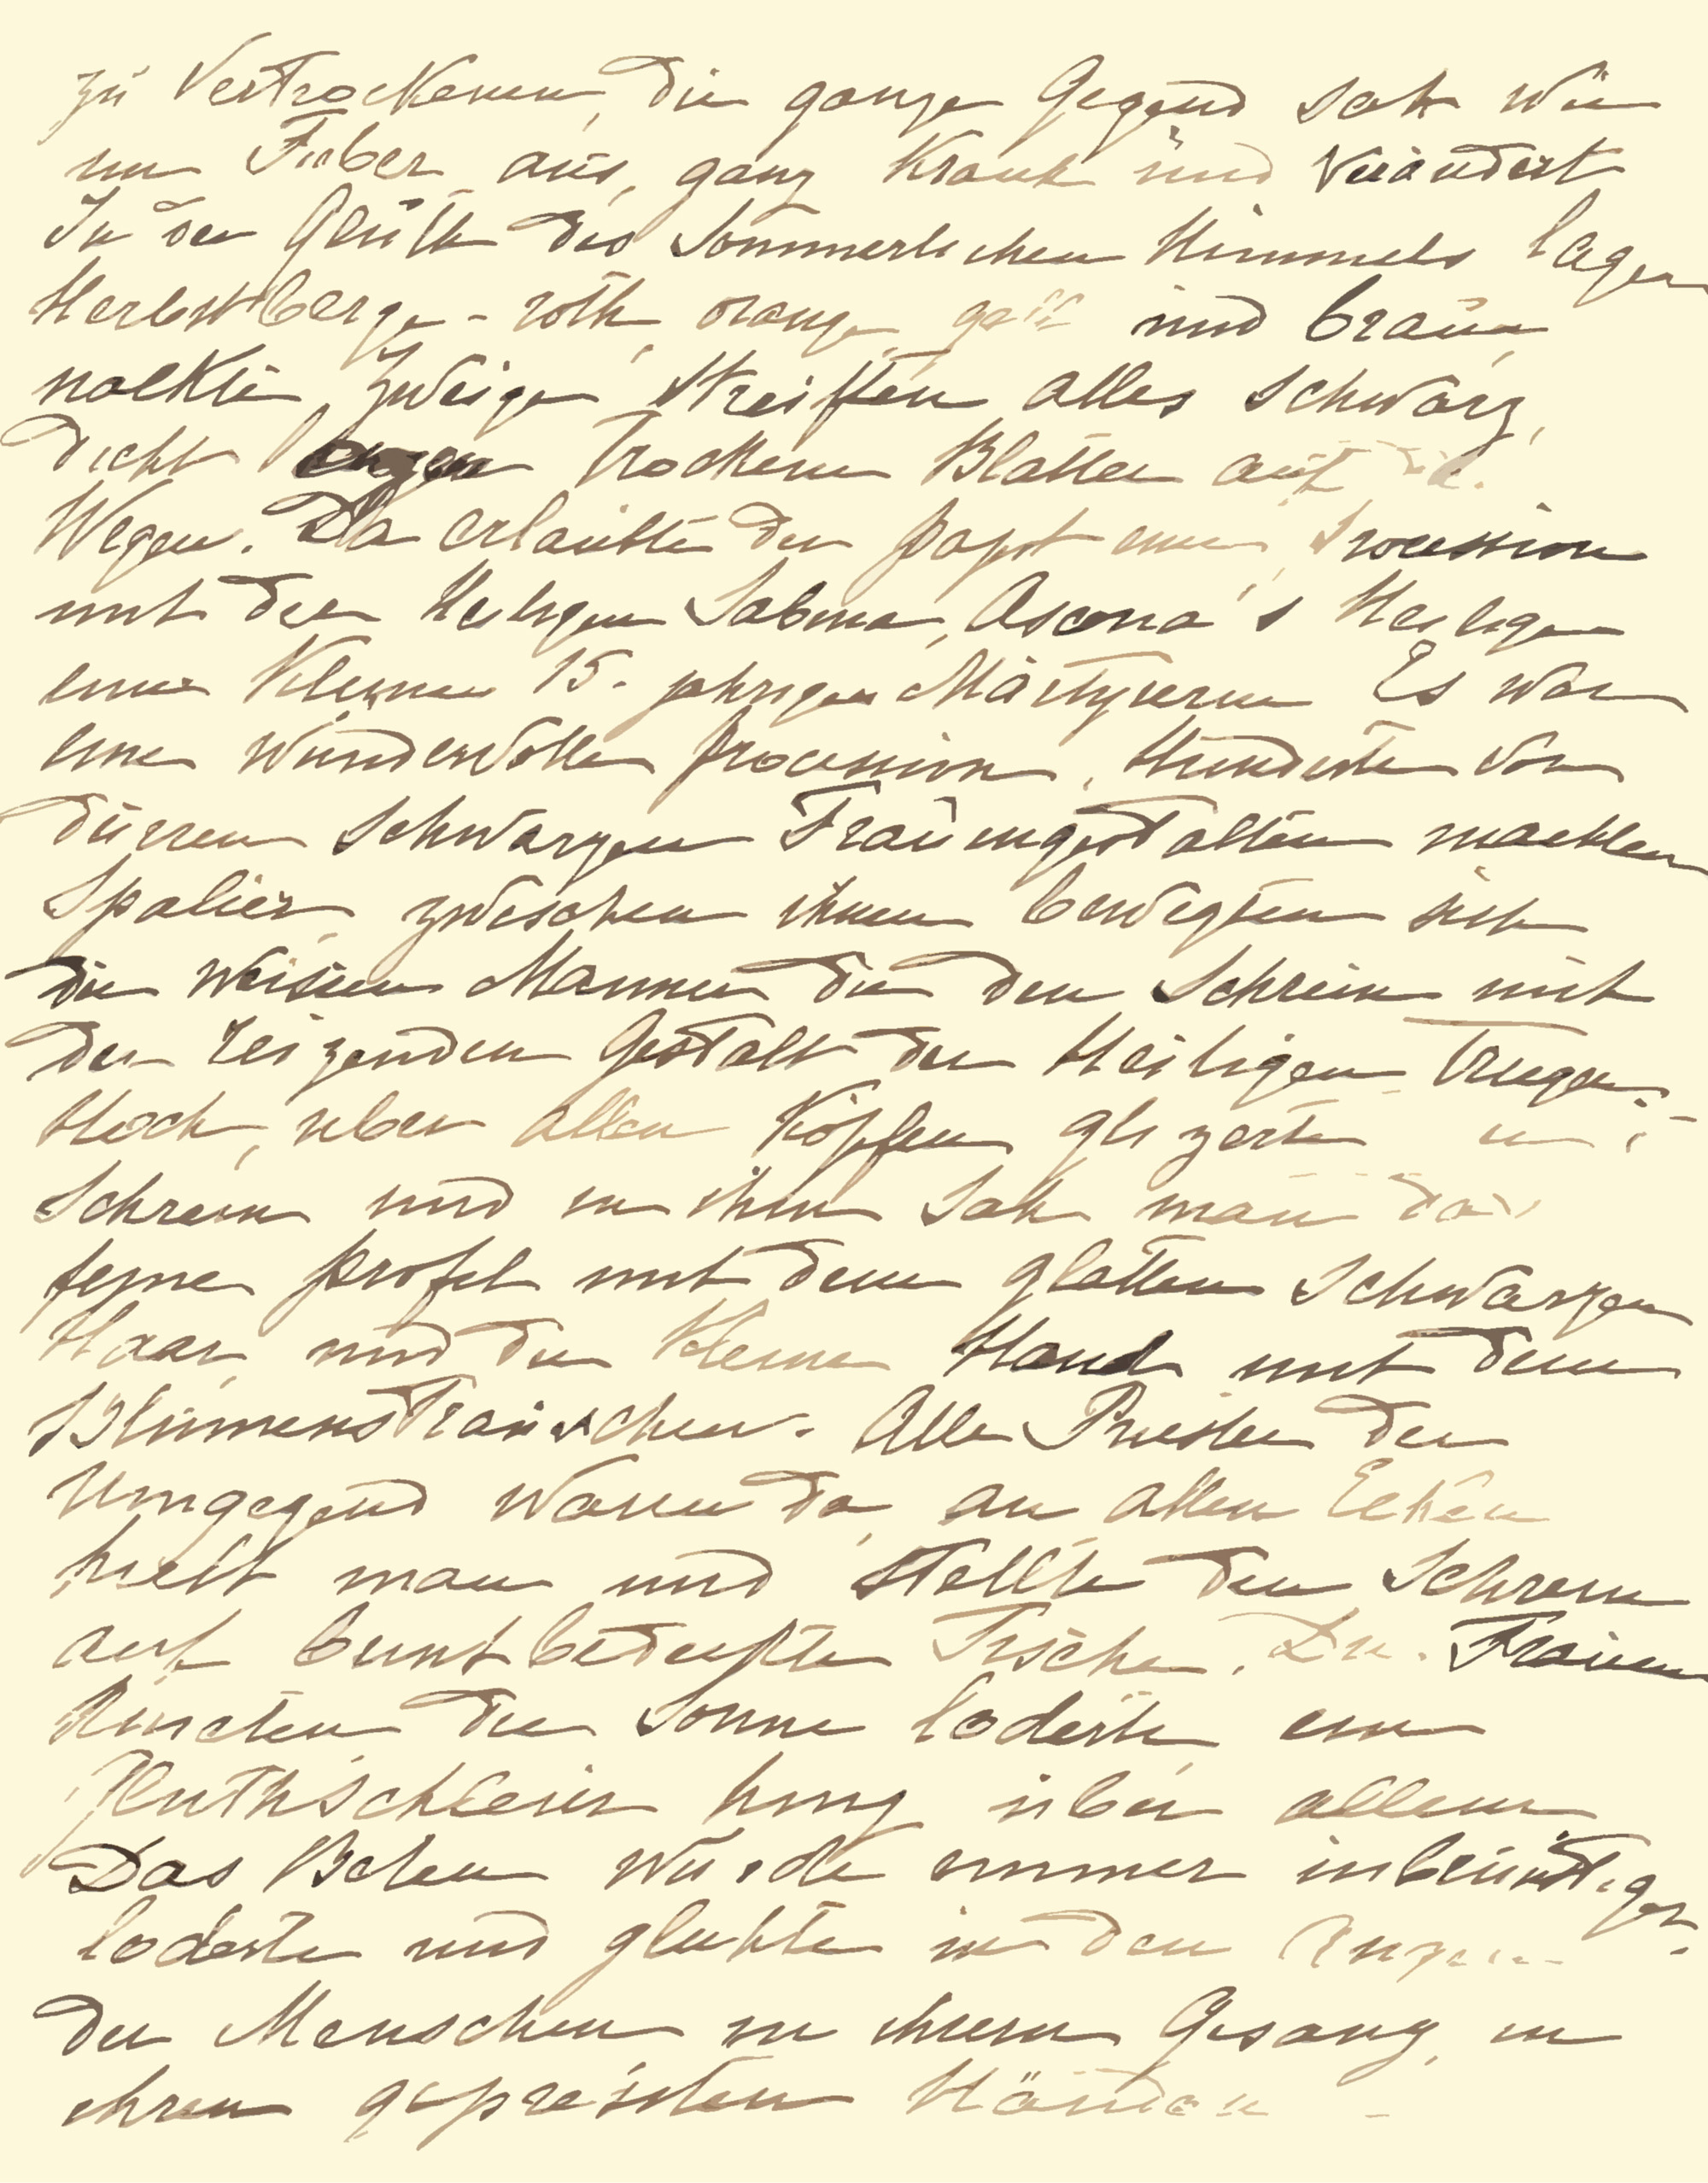 zu vertrockenen, die ganze Gegend sah wie
im Fieber aus, ganz krank und verändert
In der Gluth des Sommerlichen Himmels lagen
Herbstberge - roth, orange, gelb und braun,
nackte Zweige Streiften alles schwarz,
dicht lagen trockene Blätter auf die
Wegen. Da erlaubte der Papst eine Procession
mit der Heiligen Sabina, Ascona's Heilige
eine kleine 15. jahrigen Märtyrerin Es war
eine wundervolle Procession, Hunderte von
dürren schwarzen Frauengestalten machten
Spalier, zwischen ihnen bewegten sich
die weissen Männer die den Schrein mit
der reizenden Gestalt der Heiligen trugen.
Hoch, über allen Köpfen glizerte
Schrein und in ihm sah man das
feine Profil mit dem glatten schwarzen
Haar, und die kleine Hand mit dem
Blumensträusschen. Alle Priester der
Umgegend waren da, an allen Ecken
hielt man und stellte den Schrein
auf bunt bedeckte Tische. Die Frauen
knieten die Sonne loderte, ein
Gluthschleier hing über allem
Das Beten wurde immer inbrünstiger,
loderte und glühte in den Augen
der Menschen in ihrem Gesang, in
ihren gepressten Händen -